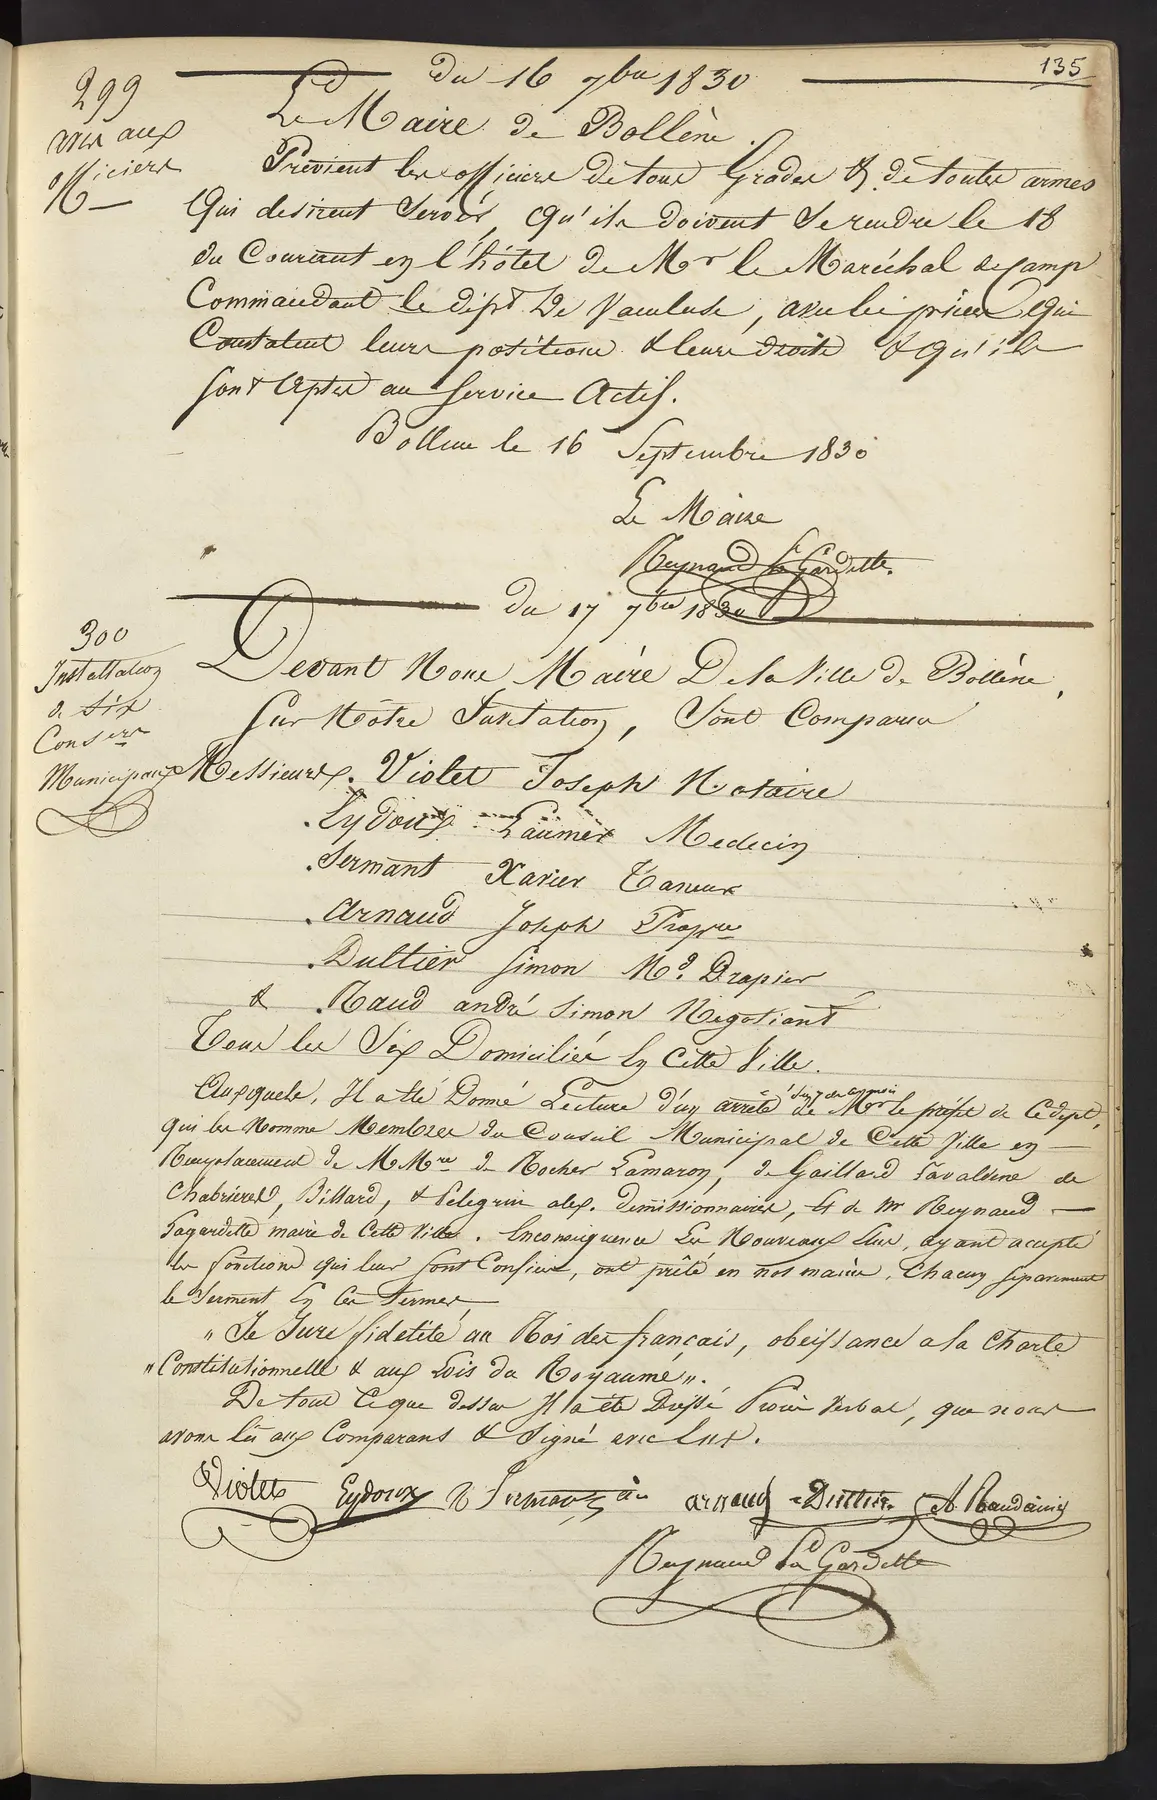 135
du 16 7bre 1830
299
avis aux
officiers
Le Maire de Bollène.
Prévient les officiers de tous Grades & de toutes armes
Qui desirent Servir, Qu'ils doivent Se rendre le 18
du Courant en l'hôtel de Mr le Maréchal de Camp
Commandant le dépt De Vaucluse, avec les pièces Qui
Constatent leurs positions & leurs droits & Qu'ils
sont Aptes au Service Actif.
Bollene le 16 Septembre 1830
Le Maire
Reynaud La Gardette.
du 17 7bre 1830
300
Installation
de Six
Consers
Municipaux
Devant Nous Maire De la Ville de Bollène,
Sur Nôtre Invitation, Sont Comparus
Messieurs. Violet Joseph Notaire
. Eydoux Medecin
. Sermant Xavier Taneur
. Arnaud Joseph Propre
. Dultier Simon Md. Drapier
& . Raud andré Simon Negotiant
Tous les Six Domiciliés En Cette Ville.
Auxquels, Il a été Donné Lecture d'un arrêté de Mr le préfet de Ce dept,
Qui les Nomme Membres du Conseil Municipal de Cette Ville en
Remplacement de MMrs de Rocher Lamaron, de Gaillard Lavaldene de
Chabrières, Billard, & Pelegrin alex. démissionnaires, Et de mr Reynaud
Lagardette maire de Cette Ville. Enconsequence Les Nouveaux Elus, ayant accepté
les fonctions qui leur sont Confiées, ont prêté en nos mains, Chacun séparement
le Serment En Ces Termes,
" Je Jure fidelité au Roi des français, obeissance a la Charte
" Constitutionnelle & aux Lois du Royaume ".
De tout Ce que dessus Il a été Dressé Procès Verbal, que nous
avons lû aux Comparans & Signé avec Eux.
Violet Eydoux X Sermant arnaud Dultier A. Raud
Reynaud La Gardette